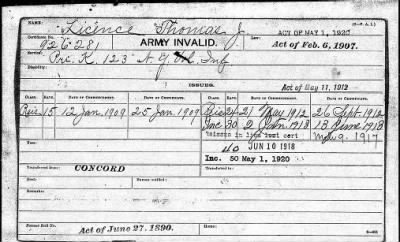 NAME. Licence Thomas J.
(3-0A1.)
Certificate No. 926281 ARMY INVALID. Law ACT OF MAY 1, 1920
Act of Feb. 6, 1907.
Service: Pvt. K, 123 N.Y. Vol. Inf
Disability:
ISSUES.
Act of May 11, 1912
CLASS. RATE. DATE OF COMMENCEMENT. DATE OF CERTIFICATE. CLASS. RATE. DATE OF COMMENCEMENT. DATE OF CERTIFICATE.
Reis 15 12 Jan 1909 25 Jan. 1909 Reis 24 21 May 1912 26 Sept. 1912
Inc 30 2 Jan. 1913 13 June 1913
Reissue in lieu lost cert May 9, 1917
40 JUN 10 1918
Inc. 50 May 1, 1920
Transferred from CONCORD
Transferred to
Date Notified.
Remarks:
Former Roll No. Act of June 27, 1890.